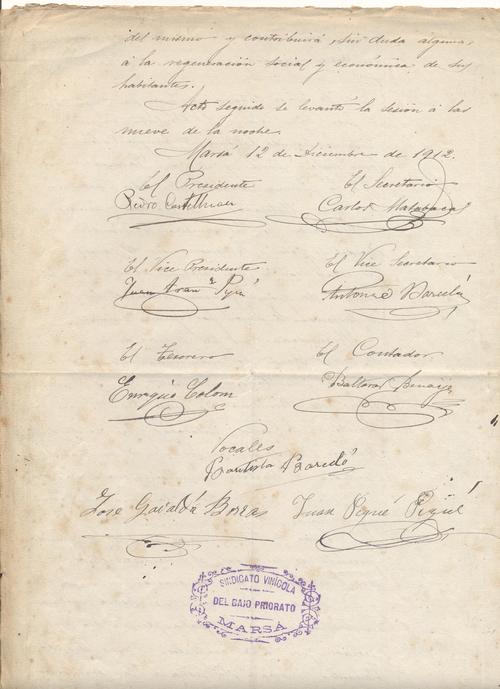 del mismo y contribuirá, sin duda alguna,
á la regeneración social y económica de sus
habitantes.
Acto seguido se levantó la sesión á las
nueve de la noche.
Marsá 12 de Diciembre de 1912.
El Presidente
El Secretario
Pedro
Carlos
El Vice Presidente
El Vice Secretario
Juan
Antonio Barceló
El Tesorero
El Contador
Enrique Colom
Vocales
Bautista Barceló
José Gavaldá Borras
Juan Piqué Piqué
SINDICATO VINÍCOLA
DEL BAJO PRIORATO
MARSÁ